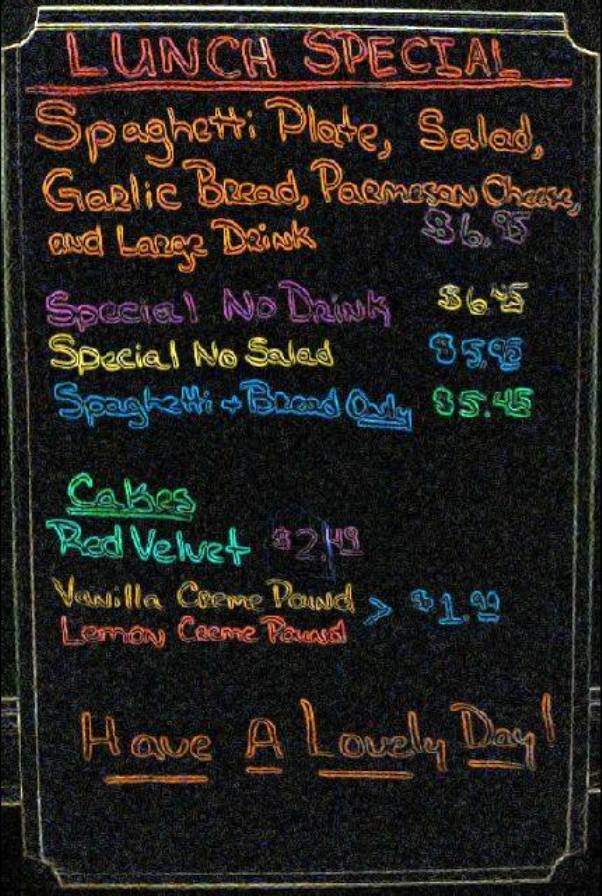 LUNCH SPECIAL
Spaghetti Plate, Salad,
Garlic Bread, Parmesan Cheese,
and Large Drink $6.95
Special No Drink $6.45
Special No Salad $5.95
Spaghetti + Bread Only $5.45
Cakes
Red Velvet $2.49
Vanilla Creme Pound > $1.99
Lemon Creme Pound
Have A Lovely Day!